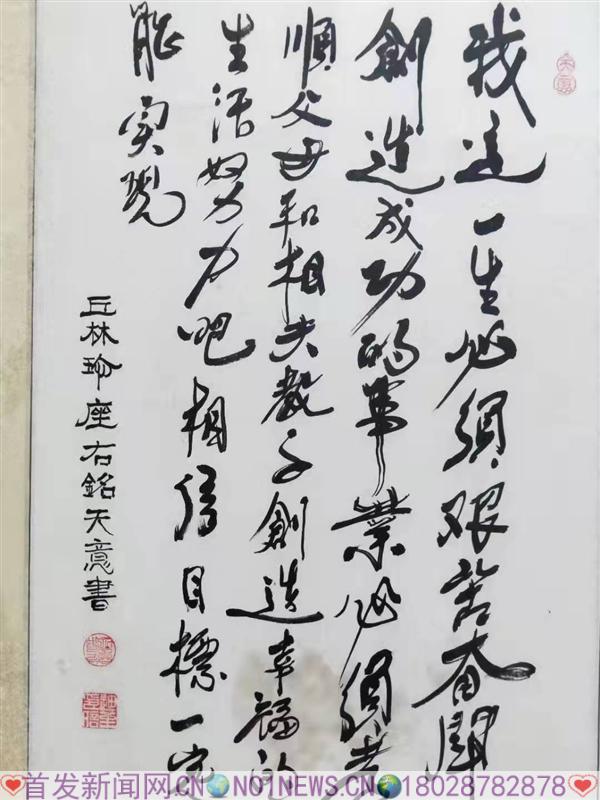 我这一生必須艰苦奋鬥
創造成功的事業必須孝
順父母和相夫教子創造幸福的
生活努力吧相信目標一定
能实现
丘林珍座右銘天意書
首发新闻网.CN NO1NEWS.CN 18028782878